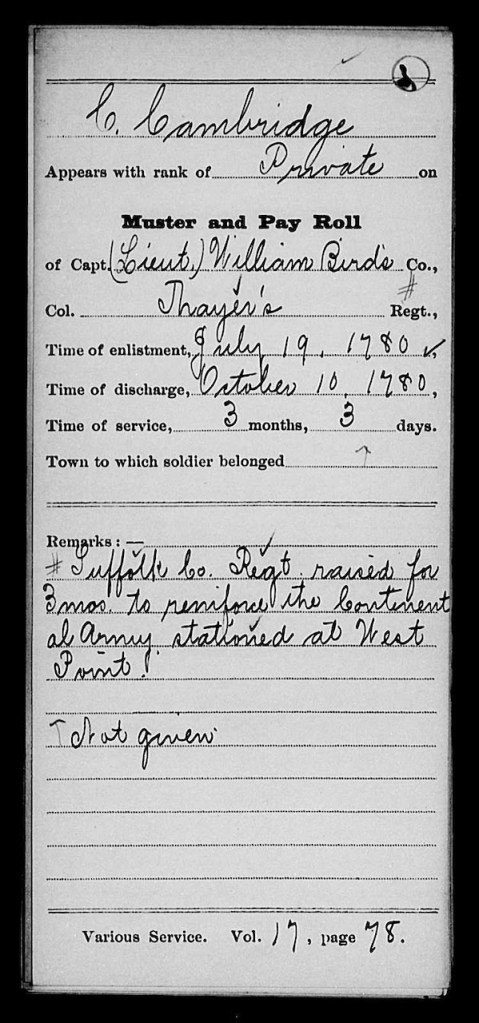 C. Cambridge
Appears with rank of Private on
Muster and Pay Roll
of Capt. (Lieut.) William Bird's Co.,
Col. Thayer's # Regt.,
Time of enlistment, July 19, 1780,
Time of discharge, October 10, 1780,
Time of service, 3 months, 3 days.
Town to which soldier belonged ↑
Remarks: —
# Suffolk Co. Regt. raised for
3 mos. to reniforce the Continent
al Army stationed at West
Point.
↑ Not given.
Various Service. Vol. 17, page 78.